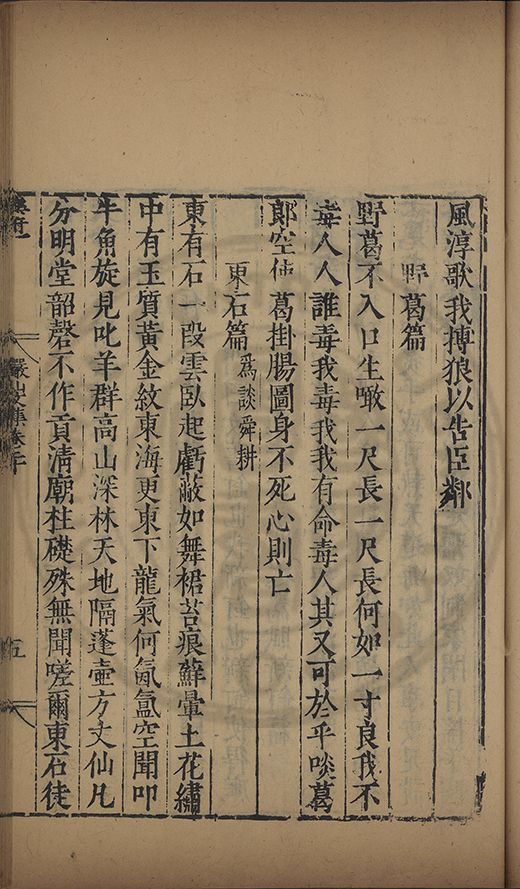 風淳歌我搏狼以告臣鄰
野葛篇
野葛不入口生噉一尺長一尺長何如一寸良我不
毒人人誰毒我毒我我有命毒人其又可於乎啖葛
郞空使葛掛腸圖身不死心則亡
東石篇 為談舜耕
東有石一段雲臥起虧蔽如舞裙苔痕蘚暈土花繡
中有玉質黃金紋東海更東下龍氣何氤氳空聞叩
牛角旋見叱羊群高山深林天地隔蓬壺方丈仙凡
分明堂韶磬不作貢清廟柱礎殊無聞嗟爾東石徒
五